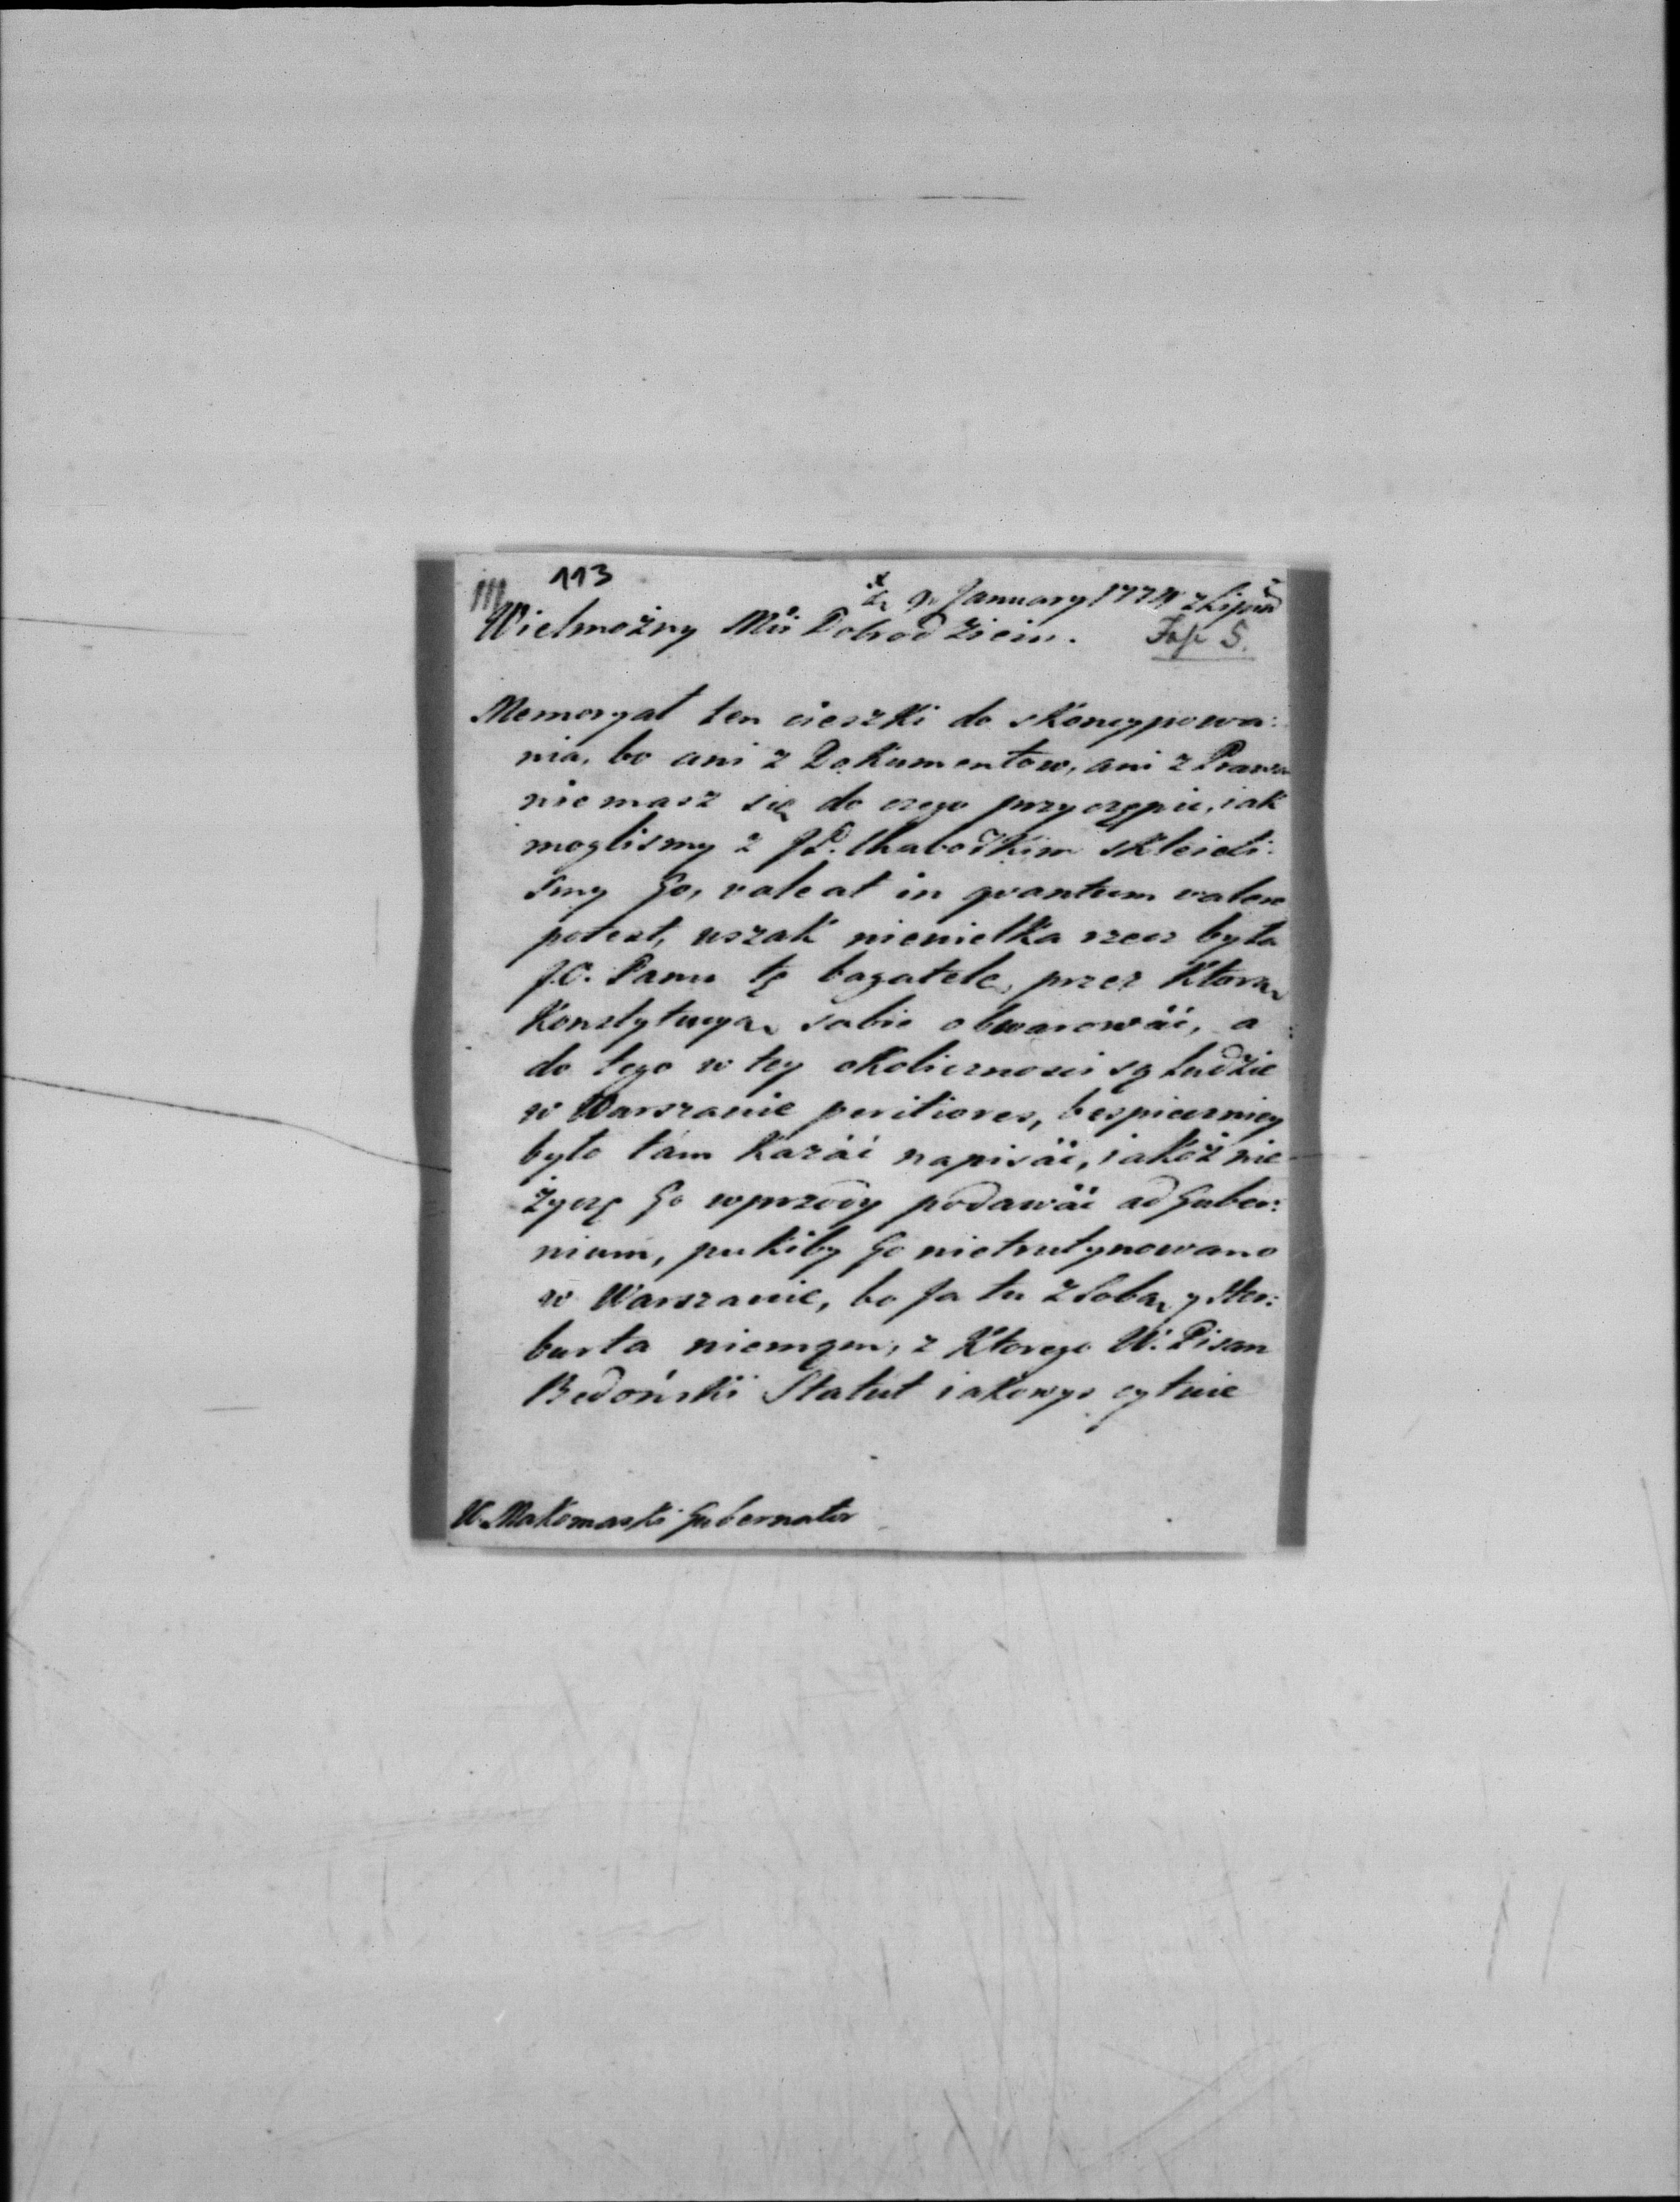 113
111
9 January 1774 z Lipna
Wielmożny Mśi Dobrodzieiu. Fasc 5.
Memoryał ten cieszki do skoncypowa:
nia, bo ani z Dokumentow, ani z Prawa
nie masz się do czego przyczepić, iak
moglismy z JP. skleieli:
smy Go, valeat in quantum valere
potest, wszak niewielka rzecz była
J.O. Panu tę bagatelę, przez Ktorą
Konstytucyą sobie obwarowáć, a
do tego w tey okolicznosci są Ludzie
w Warszawie peritiores, bespieczniey
było tám Kazáć napisáć, iakoż nie
życzę Go wprzody podawáć ad Guber:
nium, pukiby Go nietrutynowano
w Warszawie, bo Ja tu z Sobą y Her:
burta niemąm, z Ktorego W. Pisarz
Bedoński Statut iakowys cytuie
W. Makomaski Gubernator